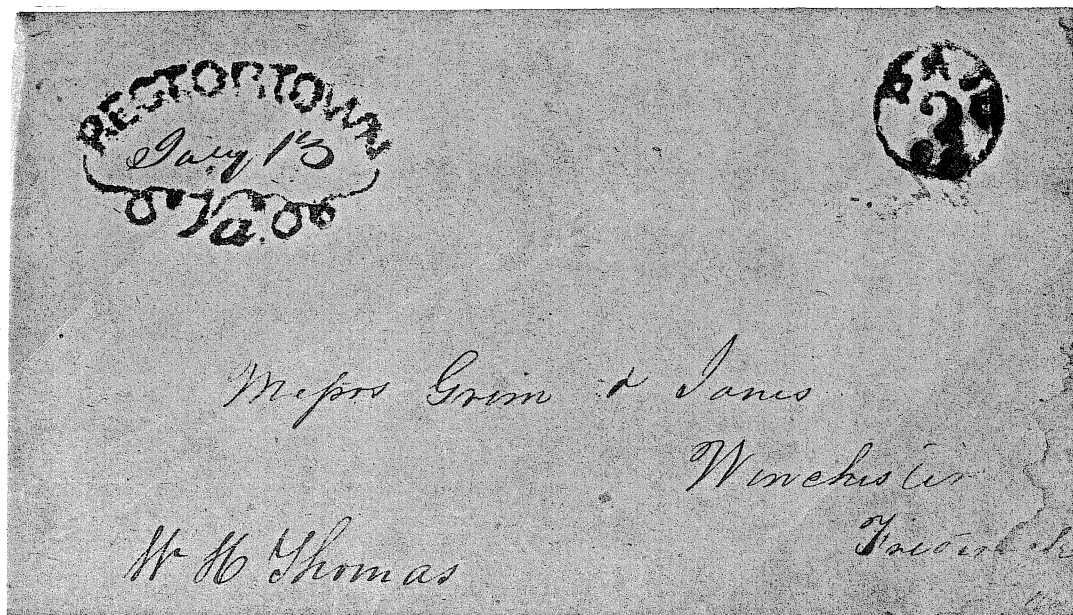 RECTORTOWN
Jany 13
Va.
PAID
3
Messrs Grim & Jones
Winchester
Frederick
W H Thomas